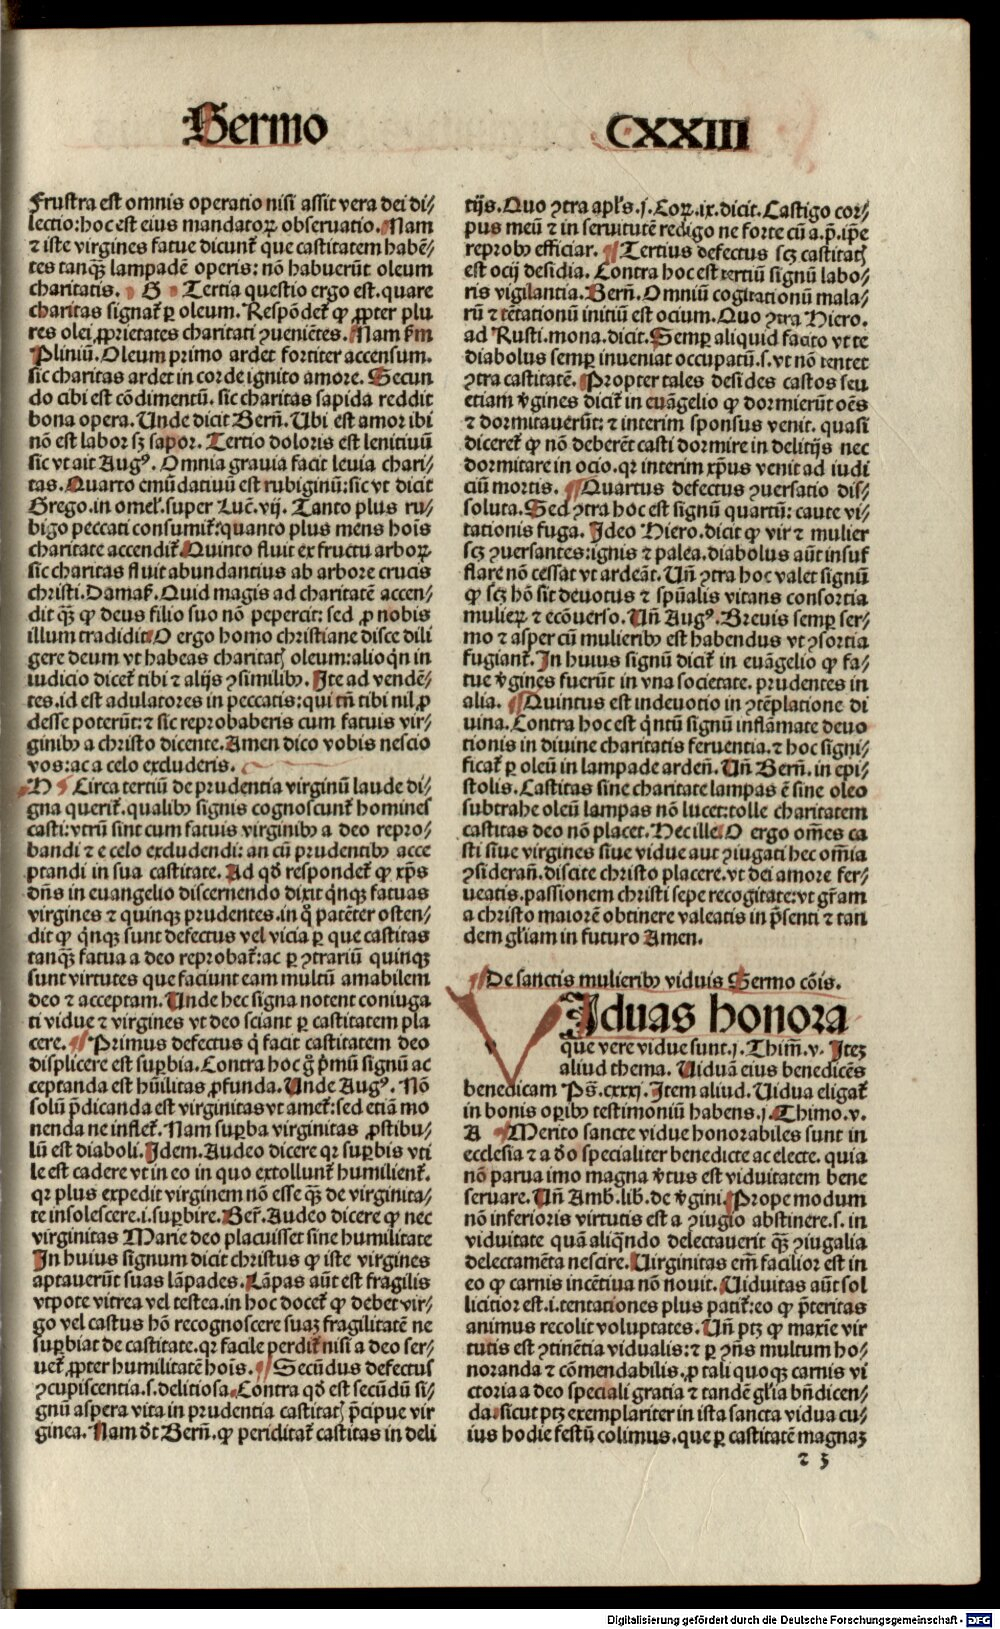 Sermo CXXIII
Frustra est omnis operatio nisi assit vera dei di/
lectio: hoc est eius mandatoꝝ observatio. Nam
⁊ iste virgines fatue dicunt᷑ que castitatem habē/
tes tanqꝫ lampadē operis: nō habuerūt oleum
charitatis. G Tertia questio ergo est. quare
charitas signat᷑ ꝑ oleum. Respōdet᷑ ꝙ ꝓpter plu
res olei ꝓprietates charitati ꝯveniētes. Nam ẜm
Pliniū. Oleum primo ardet fortiter accensum.
sic charitas ardet in corde ignito amore. Secun
do cibi est cōdimentū. sic charitas sapida reddit
bona opera. Unde dicit Bern̄. Ubi est amor ibi
nō est labor sꝫ sapor. Tertio doloris est lenitiuū
sic vt ait Augꝰ. Omnia grauia facit leuia chari/
tas. Quarto emūdatiuū est rubiginū: sic vt dicit
Grego. in omel̕. super Luc̄. vij. Tanto plus ru/
bigo peccati consumit᷑: quanto plus mens hoīs
charitate accendit᷑. Quinto fluit ex fructu arboꝝ
sic charitas fluit abundantius ab arbore crucis
christi. Damas̕. Quid magis ad charitatē accen/
dit qꝫ̄ ꝙ deus filio suo nō pepercit: sed ꝓ nobis
illum tradidit. O ergo homo christiane disce dili
gere deum vt habeas charitatꝭ oleum: alioqͥn in
iudicio dicet᷑ tibi ⁊ alijs ꝯsimilibꝰ. Ite ad vendē/
tes. id est adulatores in peccatis: qui tn̄ tibi nil ꝓ
desse poterūt: ⁊ sic reprobaberis cum fatuis vir/
ginibꝰ a christo dicente. Amen dico vobis nescio
vos: ac a celo excluderis.
H Circa tertiū de prudentia virginū laude di/
gna querit᷑. qualibꝰ signis cognoscunt᷑ homines
casti: vtrū sint cum fatuis virginibꝰ a deo repro/
bandi ⁊ e celo excludendi: an cū prudentibꝰ acce
ptandi in sua castitate. Ad qd̓ respondet᷑ ꝙ xp̄s
dn̄s in euangelio discernendo dixit qͥnqꝫ fatuas
virgines ⁊ quinqꝫ prudentes. in qͦ patēter osten/
dit ꝙ qͥnqꝫ sunt defectus vel vicia ꝑ que castitas
tanqꝫ̄ fatua a deo reprobat᷑: ac ꝑ ꝯtrariū quinqꝫ
sunt virtutes que faciunt eam multū amabilem
deo ⁊ acceptam. Unde hec signa notent coniuga
ti vidue ⁊ virgines vt deo sciant ꝑ castitatem pla
cere. Primus defectus qͥ facit castitatem deo
displicere est suꝑbia. Contra hoc gͦ pͥmū signū ac
ceptanda est hūilitas ꝓfunda. Unde Augꝰ. Nō
solū p̄dicanda est virginitas vt amet᷑: sed etiā mo
nenda ne inflet᷑. Nam suꝑba virginitas ꝓstibu/
lū est diaboli. Idem. Audeo dicere qꝛ suꝑbis vti
le est cadere vt in eo in quo extollunt᷑ humilient᷑.
qꝛ plus expedit virginem nō esse qꝫ̄ de virginita/
te insolescere. i. suꝑbire. Ber̄. Audeo dicere ꝙ nec
virginitas Marie deo placuisset sine humilitate
In huius signum dicit christus ꝙ iste virgines
aptauerūt suas lāpades. Lāpas aūt est fragilis
vtpote vitrea vel testea. in hoc docet᷑ ꝙ debet vir/
go vel castus hō recognoscere suaꝫ fragilitatē ne
suꝑbiat de castitate. qꝛ facile perdit᷑ nisi a deo ser/
uet᷑ ꝓpter humilitatē hoīs. Secūdus defectus
ꝯcupiscentia. s. delitiosa. Contra qd̓ est secūdū si/
gnū aspera vita in prudentia castitatꝭ p̄cipue vir
ginea. Nam dt̓ Bern̄. ꝙ periclitat᷑ castitas in deli
tijs. Quo ꝯtra apl̕s. j. Coꝝ. ix. dicit. Castigo cor/
pus meū ⁊ in seruitutē redigo ne forte cū a. p̄. ip̄e
reprobꝰ efficiar. Tertius defectus scꝫ castitatꝭ
est ocij desidia. Contra hoc est tertiū signū labo/
ris vigilantia. Bern̄. Omniū cogitationū mala/
rū ⁊ tētationū initiū est ocium. Quo ꝯtra Hiero.
ad Rusti. mona. dicit. Semꝑ aliquid facito vt te
diabolus semꝑ inueniat occupatū. s. vt nō tentet
ꝯtra castitatē. Propter tales desides castos seu
etiam v̓gines dicit᷑ in euāgelio ꝙ dormierūt oēs
⁊ dormitauerūt: ⁊ interim sponsus venit. quasi
diceret᷑ ꝙ nō deberēt casti dormire in delitijs nec
dormitare in ocio. qꝛ interim xp̄us venit ad iudi
ciū mortis. Quartus defectus ꝯuersatio dis/
soluta. Sed ꝯtra hoc est signū quartū: caute vi/
tationis fuga. Ideo Hiero. dicit ꝙ vir ⁊ mulier
scꝫ ꝯuersantes: ignis ⁊ palea. diabolus aūt insuf
flare nō cessat vt ardeāt. Un̄ ꝯtra hoc valet signū
ꝙ scꝫ hō sit deuotus ⁊ spūalis vitans consortia
mulieꝝ ⁊ ecōuerso. Un̄ Augꝰ. Breuis semꝑ ser/
mo ⁊ asper cū mulieribꝰ est habendus vt ꝯsortia
fugiant᷑. In huius signū dicit᷑ in euāgelio ꝙ fa/
tue v̓gines fuerūt in vna societate. prudentes in
alia. Quintus est indeuotio in ꝯtēplatione di
uina. Contra hoc est qͥntū signū inflāmate deuo
tionis in diuine charitatis feruentia. ⁊ hoc signi/
ficat᷑ ꝑ oleū in lampade arden̄. Un̄ Bern̄. in epi/
stolis. Castitas sine charitate lampas ē sine oleo
subtrahe oleū lampas nō lucet: tolle charitatem
castitas deo nō placet. Hec ille. O ergo om̄es ca
sti siue virgines siue vidue aut ꝯiugati hec om̄ia
ꝯsideran̄. discite christo placere. vt dei amore fer/
ueatis. passionem christi sepe recogitate: vt gr̄am
a christo maiorē obtinere valeatis in p̄senti ⁊ tan
dem gl̓iam in futuro Amen.
De sanctis mulieribꝰ viduis Sermo cōis.
VIduas honora
que vere vidue sunt. j. Thim̄. v. Iteꝫ
aliud thema. Uiduā eius benedicēs
benedicam Ps̄. cxxxj. Item aliud. Uidua eligat᷑
in bonis oꝑibꝰ testimoniū habens. j. Thimo. v.
A Merito sancte vidue honorabiles sunt in
ecclesia ⁊ a d̓o specialiter benedicte ac electe. quia
nō parua imo magna v̓tus est viduitatem bene
seruare. Un̄ Amb. lib. de v̓gini. Prope modum
nō inferioris virtutis est a ꝯiugio abstinere. s. in
viduitate quā aliqn̄do delectauerit qꝫ̄ ꝯiugalia
delectamēta nescire. Uirginitas em̄ facilior est in
eo ꝙ carnis incētiua nō nouit. Uiduitas aūt sol
licitior est. i. tentationes plus patit᷑: eo ꝙ p̄teritas
animus recolit voluptates. Un̄ ptꝫ ꝙ maxīe vir
tutis est ꝯtinētia vidualis: ⁊ ꝑ ꝯn̄s multum ho/
noranda ⁊ cōmendabilis. ꝓ tali quoqꝫ carnis vi
ctoria a deo speciali gratia ⁊ tandē gl̓ia bn̄dicen/
da. sicut ptꝫ exemplariter in ista sancta vidua cu/
ius hodie festū colimus. que ꝑ castitatē magnaꝫ
z 3
Digitalisierung gefördert durch die Deutsche Forschungsgemeinschaft - DFG